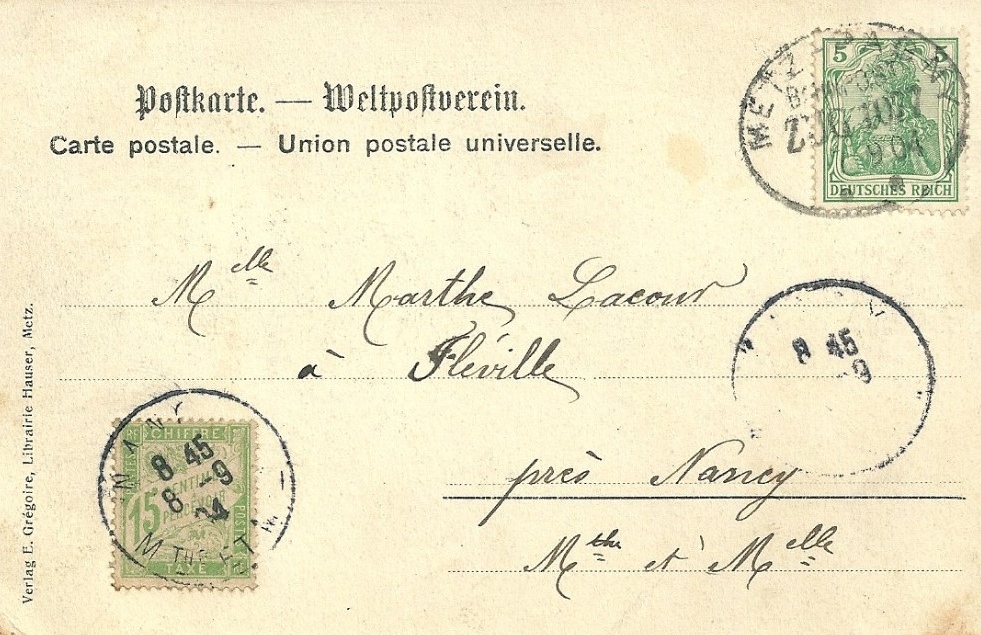 Postkarte. — Weltpostverein.
Carte postale. — Union postale universelle.
5 5
DEUTSCHES REICH
METZ
BAHNPOST
ZUG
9 04
Mlle Marthe Lacour
à Fléville
près Nancy
Mthe et Mlle
8 45
-9
NANCY
8 45
8 -9
04
MTHE ET M
CHIFFRE
15
CENTIMES
À PERCEVOIR
POSTES
TAXE
Verlag E. Grégoire, Librairie Hauser, Metz.